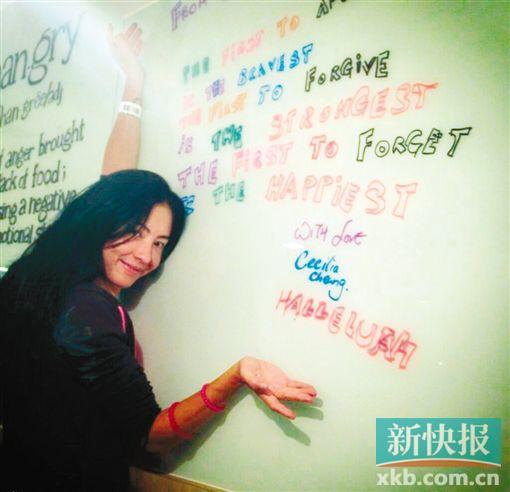 angry
han
anger brought
lack of food;
a negative
FROM
THE FIRST TO
IS THE BRAVEST
THE FIRST TO FORGIVE
IS THE STRONGEST
THE FIRST TO FORGET
IS THE HAPPIEST
WITH Love
Cecilia
cheung.
HALLELUJAH
新快报
xkb.com.cn